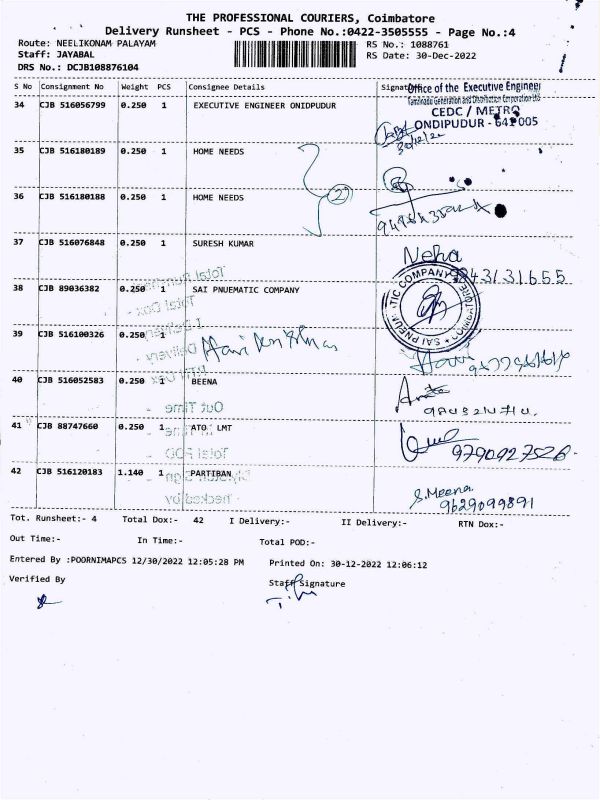 THE PROFESSIONAL COURIERS, Coimbatore
Delivery Runsheet - PCS - Phone No.:0422-3505555 - Page No.:4
Route: NEELIKONAM PALAYAM RS No.: 1088761
Staff: JAYABAL RS Date: 30-Dec-2022
DRS No.: DCJB108876104
S No Consignment No Weight PCS Consignee Details Signature
Office of the Executive Engineer
Tamilnadu Generation and Distribution Corporation Ltd
CEDC / METRO
ONDIPUDUR - 641 005
34 CJB 516056799 0.250 1 EXECUTIVE ENGINEER ONIPUDUR
30/12/22
35 CJB 516180189 0.250 1 HOME NEEDS
36 CJB 516180188 0.250 1 HOME NEEDS
2
37 CJB 516076848 0.250 1 SURESH KUMAR Neha
38 CJB 89036382 0.250 1 SAI PNUEMATIC COMPANY
SAI PNEUMATIC COMPANY COIMBATORE
39 CJB 516100326 0.250 1 Hari
40 CJB 516052583 0.250 1 BEENA
41 CJB 88747660 0.250 1 ATO LMT 9790927526
42 CJB 516120183 1.140 1 PARTIBAN S.Meena
9629099891
Tot. Runsheet:- 4 Total Dox:- 42 I Delivery:- II Delivery:- RTN Dox:-
Out Time:- In Time:- Total POD:-
Entered By :POORNIMAPCS 12/30/2022 12:05:28 PM Printed On: 30-12-2022 12:06:12
Verified By Staff Signature